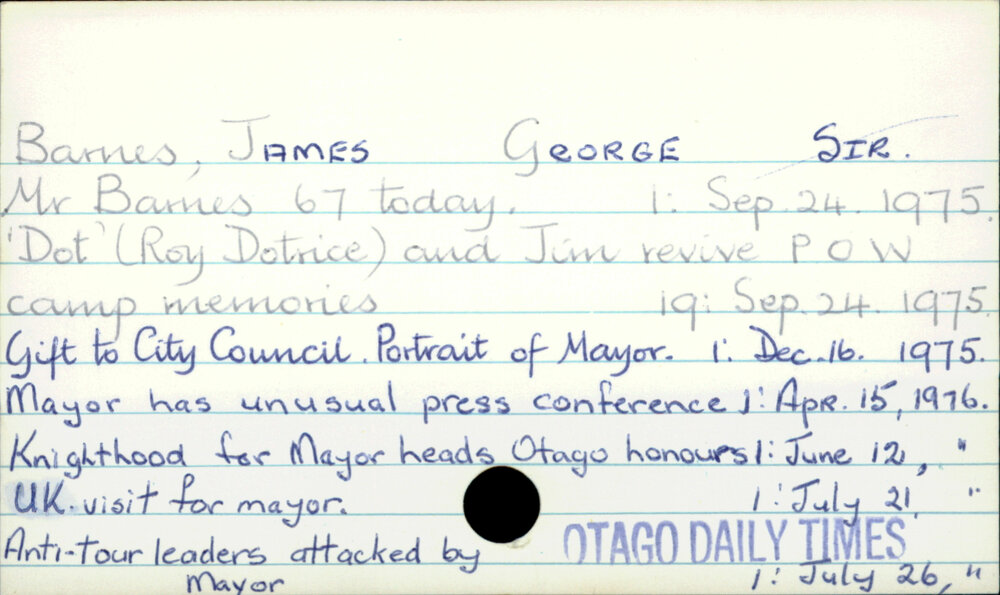 Barnes, JAMES GEORGE SIR.
Mr Barnes 67 today. 1: Sep. 24. 1975.
'Dot' (Roy Dotrice) and Jim revive P O W
camp memories 19: Sep. 24. 1975.
Gift to City Council. Portrait of Mayor. 1: Dec. 16. 1975.
Mayor has unusual press conference 1: Apr. 15, 1976.
Knighthood for Mayor heads Otago honours 1: June 12, "
UK. visit for mayor. 1: July 21, "
Anti-Tour leaders attacked by OTAGO DAILY TIMES
Mayor 1: July 26, "